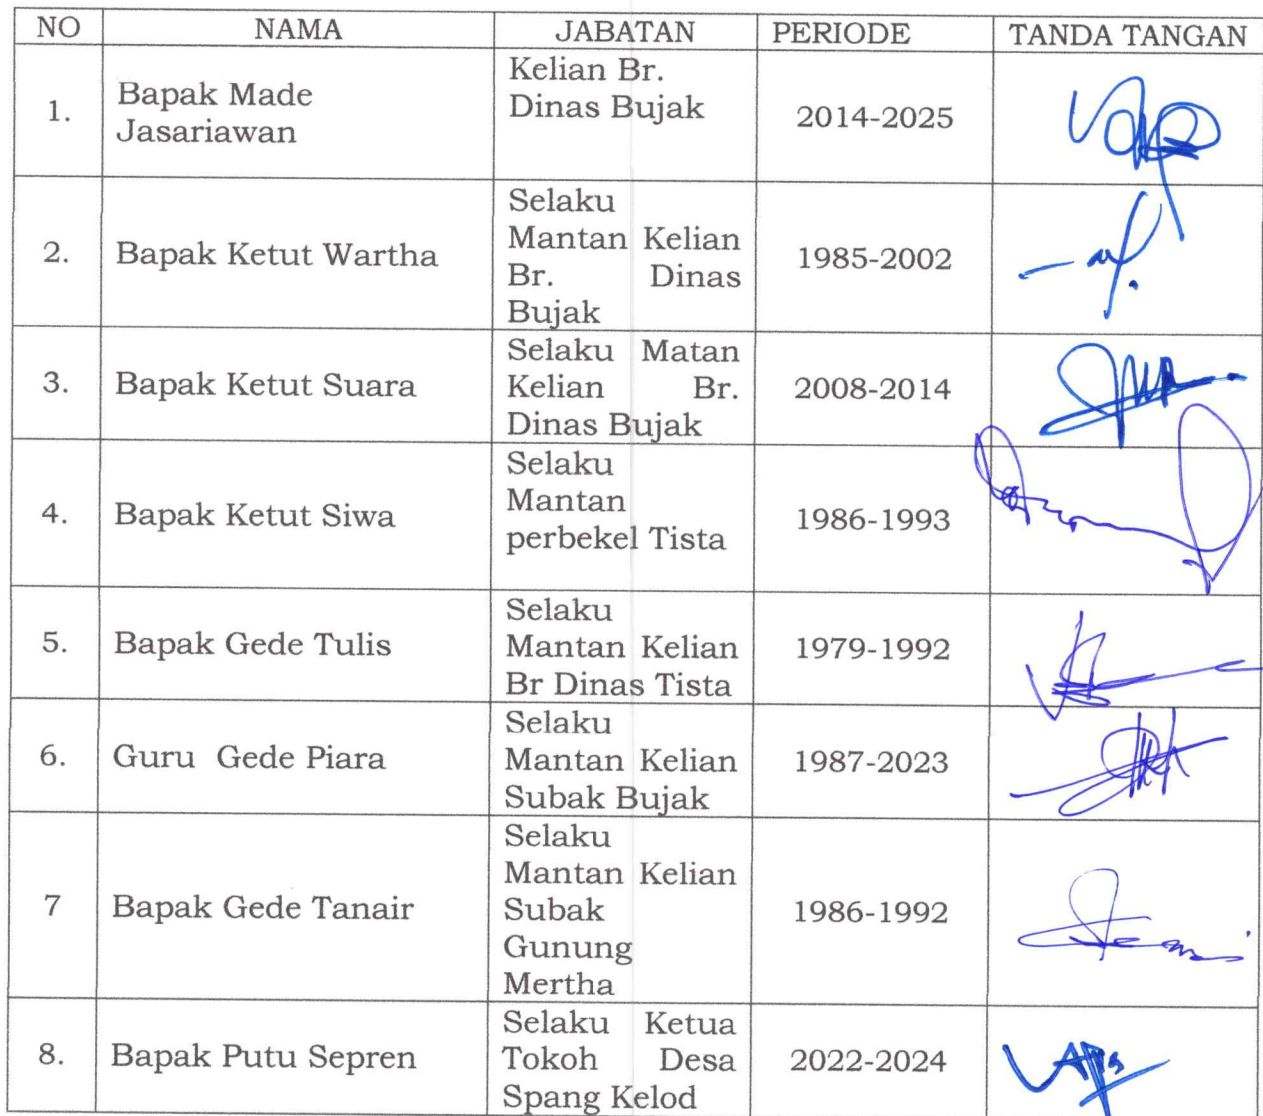 NO NAMA JABATAN PERIODE TANDA TANGAN
1. Bapak Made
Jasariawan
Kelian Br.
Dinas Bujak
2014-2025
2. Bapak Ketut Wartha
Selaku
Mantan Kelian
Br. Dinas
Bujak
1985-2002
3. Bapak Ketut Suara
Selaku Matan
Kelian Br.
Dinas Bujak
2008-2014
4. Bapak Ketut Siwa
Selaku
Mantan
perbekel Tista
1986-1993
5. Bapak Gede Tulis
Selaku
Mantan Kelian
Br Dinas Tista
1979-1992
6. Guru Gede Piara
Selaku
Mantan Kelian
Subak Bujak
1987-2023
7 Bapak Gede Tanair
Selaku
Mantan Kelian
Subak
Gunung
Mertha
1986-1992
8. Bapak Putu Sepren
Selaku Ketua
Tokoh Desa
Spang Kelod
2022-2024